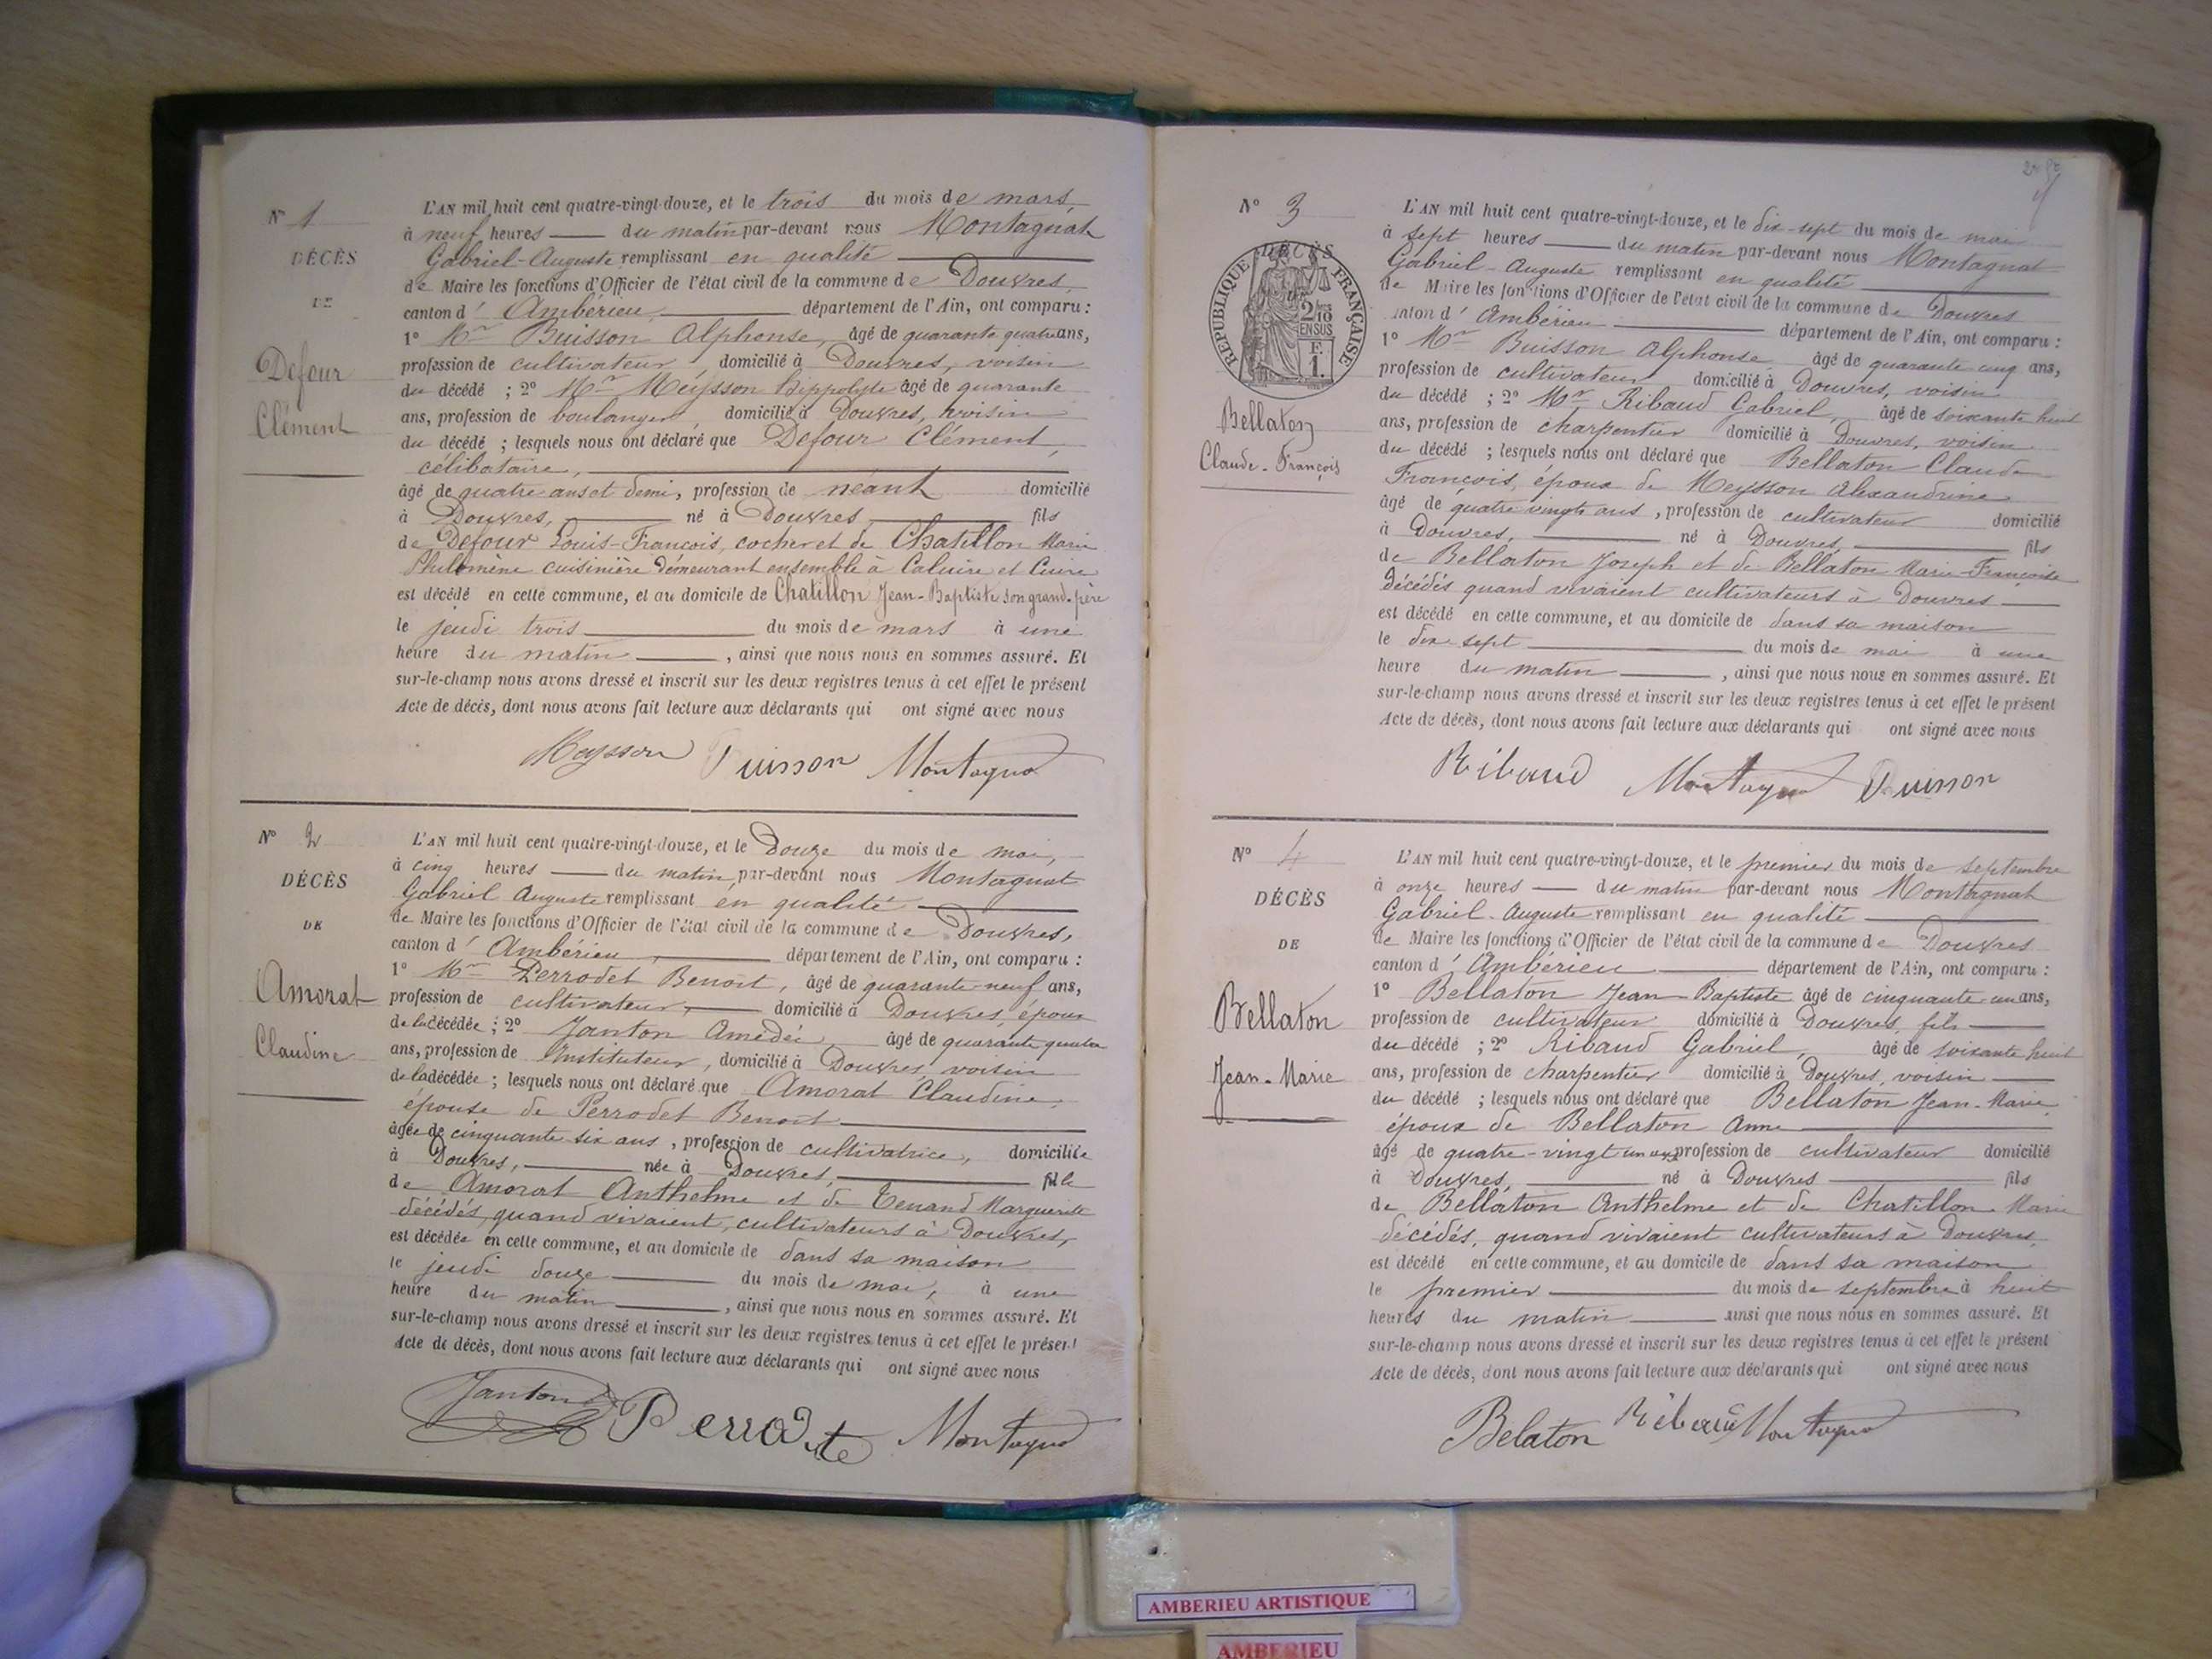 N° 1
DÉCÈS
DE
Defour
Clément
L'AN mil huit cent quatre-vingt-douze, et le trois du mois de mars,
à neuf heures du matin par-devant nous Montagnat
Gabriel-Auguste remplissant en qualité
de Maire les fonctions d'Officier de l'état civil de la commune de Douvres,
canton d' Ambérieu, département de l'Ain, ont comparu :
1° Mr Buisson Alphonse, âgé de quarante quatre ans,
profession de cultivateur, domicilié à Douvres, voisin
du décédé ; 2° Mr Meysson Hippolyte âgé de quarante
ans, profession de boulanger, domicilié à Douvres, voisin
du décédé ; lesquels nous ont déclaré que Defour Clément,
célibataire,
âgé de quatre ans et demi, profession de néant domicilié
à Douvres, né à Douvres, fils
de Defour Louis-François, cocher et de Chatillon Marie
Philomène cuisinière demeurant ensemble à Caluire et Cuire
est décédé en cette commune, et au domicile de Chatillon Jean-Baptiste son grand-père
le jeudi trois du mois de mars à une
heure du matin, ainsi que nous nous en sommes assuré. Et
sur-le-champ nous avons dressé et inscrit sur les deux registres tenus à cet effet le présent
Acte de décès, dont nous avons fait lecture aux déclarants qui ont signé avec nous
Meysson Buisson Montagnat
N° 2
DÉCÈS
DE
Amorat
Claudine
L'AN mil huit cent quatre-vingt-douze, et le Douze du mois de mai,
à cinq heures du matin, par-devant nous Montagnat
Gabriel Auguste remplissant en qualité
de Maire les fonctions d'Officier de l'état civil de la commune de Douvres,
canton d' Ambérieu, département de l'Ain, ont comparu :
1° Mr Perrodet Benoit, âgé de quarante-neuf ans,
profession de cultivateur, domicilié à Douvres, époux
de la décédée ; 2° Janton Amédée âgé de quarante quatre
ans, profession de Instituteur, domicilié à Douvres, voisin
de la décédée ; lesquels nous ont déclaré que Amorat Claudine,
épouse de Perrodet Benoit
âgée de cinquante six ans, profession de cultivatrice, domiciliée
à Douvres, née à Douvres, fille
de Amorat Anthelme et de Tenand Marguerite
décédés, quand vivaient, cultivateurs à Douvres,
est décédée en cette commune, et au domicile de dans sa maison
le jeudi douze du mois de mai, à une
heure du matin, ainsi que nous nous en sommes assuré. Et
sur-le-champ nous avons dressé et inscrit sur les deux registres tenus à cet effet le présent
Acte de décès, dont nous avons fait lecture aux déclarants qui ont signé avec nous
Janton Perrodet Montagnat
N° 3
DÉCÈS
RÉPUBLIQUE FRANÇAISE
2 10
EN SUS
F.
1.
Bellaton
Claude-François
L'AN mil huit cent quatre-vingt-douze, et le dix-sept du mois de mai
à sept heures du matin par-devant nous Montagnat
Gabriel-Auguste remplissant en qualité
de Maire les fonctions d'Officier de l'état civil de la commune de Douvres
canton d' Ambérieu département de l'Ain, ont comparu :
1° Mr Buisson Alphonse âgé de quarante cinq ans,
profession de cultivateur domicilié à Douvres, voisin
du décédé ; 2° Mr Ribaud Gabriel, âgé de soixante huit
ans, profession de charpentier domicilié à Douvres, voisin
du décédé ; lesquels nous ont déclaré que Bellaton Claude
François, époux de Meysson Alexandrine
âgé de quatre vingts ans, profession de cultivateur domicilié
à Douvres, né à Douvres, fils
de Bellaton Joseph et de Bellaton Marie-Françoise
décédés quand vivaient cultivateurs à Douvres
est décédé en cette commune, et au domicile de dans sa maison
le dix sept du mois de mai à une
heure du matin, ainsi que nous nous en sommes assuré. Et
sur-le-champ nous avons dressé et inscrit sur les deux registres tenus à cet effet le présent
Acte de décès, dont nous avons fait lecture aux déclarants qui ont signé avec nous
Ribaud Montagnat Buisson
N° 4
DÉCÈS
DE
Bellaton
Jean-Marie
L'AN mil huit cent quatre-vingt-douze, et le premier du mois de septembre
à onze heures du matin par-devant nous Montagnat
Gabriel-Auguste remplissant en qualité
de Maire les fonctions d'Officier de l'état civil de la commune de Douvres
canton d' Ambérieu département de l'Ain, ont comparu :
1° Bellaton Jean Baptiste âgé de cinquante-un ans,
profession de cultivateur domicilié à Douvres, fils
du décédé ; 2° Ribaud Gabriel, âgé de soixante huit
ans, profession de charpentier domicilié à Douvres, voisin
du décédé ; lesquels nous ont déclaré que Bellaton Jean-Marie,
époux de Bellaton Anne
âgé de quatre-vingt un ans, profession de cultivateur domicilié
à Douvres, né à Douvres fils
de Bellaton Anthelme et de Chatillon Marie
décédés, quand vivaient cultivateurs à Douvres
est décédé en cette commune, et au domicile de dans sa maison
le premier du mois de septembre à huit
heures du matin ainsi que nous nous en sommes assuré. Et
sur-le-champ nous avons dressé et inscrit sur les deux registres tenus à cet effet le présent
Acte de décès, dont nous avons fait lecture aux déclarants qui ont signé avec nous
Belaton Ribaud Montagnat
AMBERIEU ARTISTIQUE
AMBERIEU